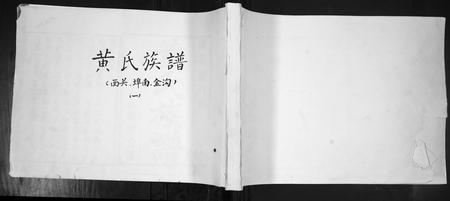 黄氏族譜
(西关、埠南、金沟)
(一)